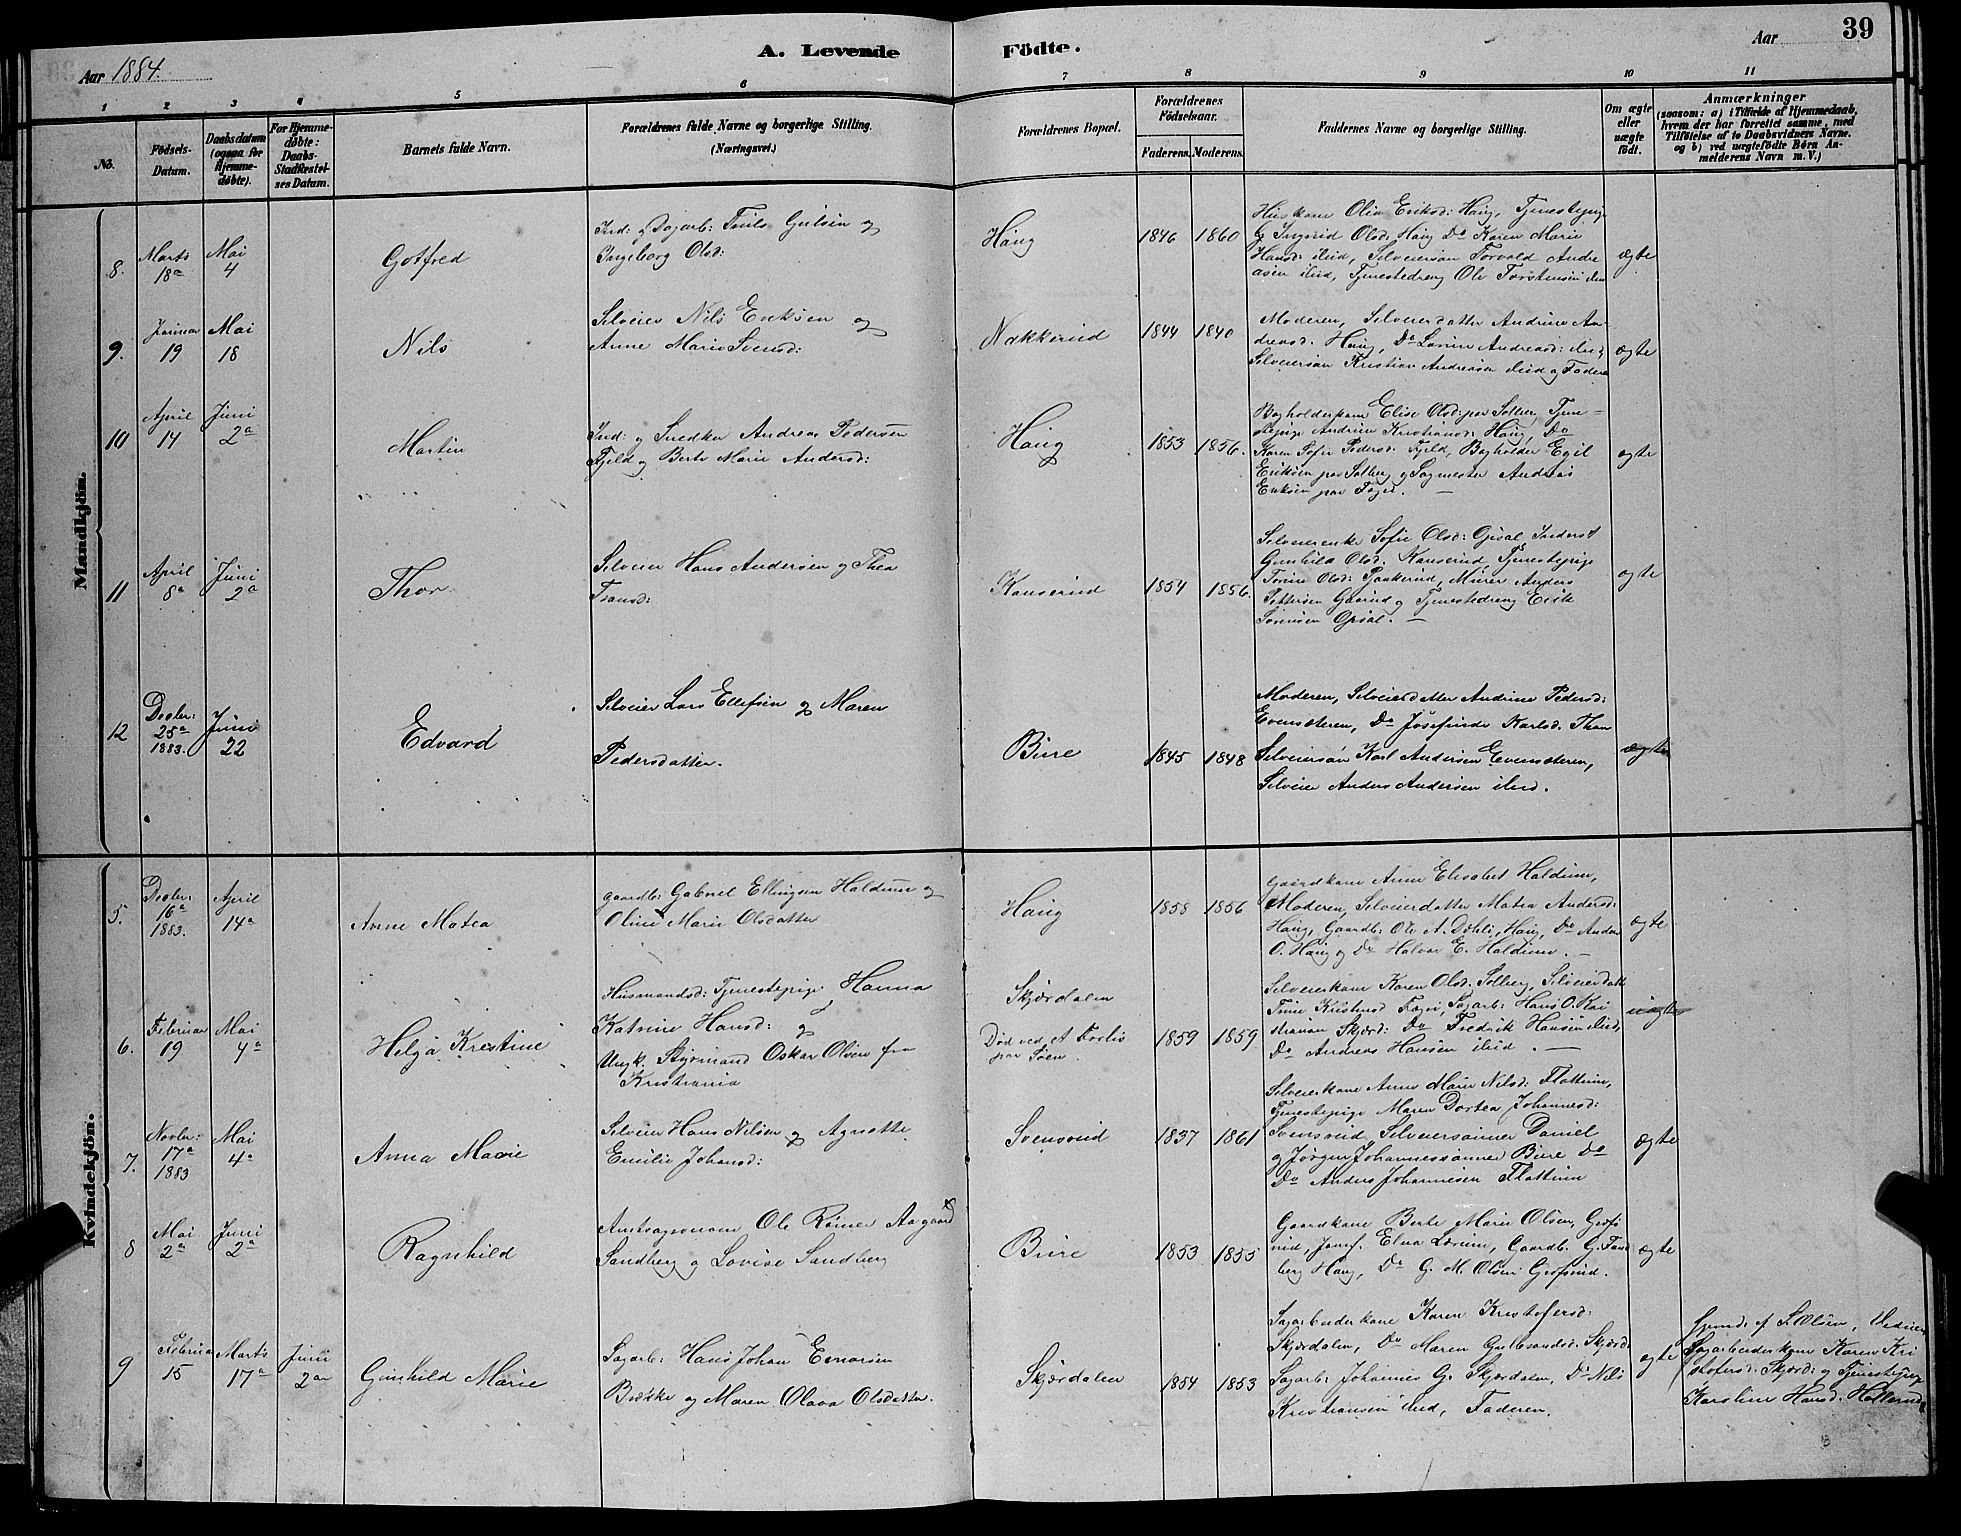 39
A. Levende Födte.
Aar 1884. Aar
1 2 3 4 5 6 7 8 9 10 11
No.
Födsels-Datum.
Daabsdatum (ogsaa for Hjemme-døbte).
For Hjemme-døbte: Daabs-Stadfæstel-ses Datum.
Barnets fulde Navn.
Forældrenes fulde Navne og borgerlige Stilling.
(Næringsvei.)
Forældrenes Bopæl.
Forældrenes Födselsaar.
Faderens. Moderens.
Faddernes Navne og borgerlige Stilling.
Om ægte eller uægte födt.
Anmærkninger
(saasom: a) i Tilfælde af Hjemmedaab, hvem der har forrettet samme, med Tilföielse af to Daabsvidners Navne. og b) ved uægtefödte Börn An-melderens Navn m. V.)
Mandkjön.
8. Marts 18de Mai 4 Gotfred
Ind: og Dagarb: Truls Gulsen og
Ingeborg Olsd:
Haug 1846 1860
Huskone Olia Eriksd: Haug, Tjenestepige
G Ingrid Olsd: Haug Do Karen Marie
Hansd: ibid, Selveiersøn Torvald Andre
asen ibid, Tjenestedreng Ole Torstensen ibid
ægte
9. Januar 19 Mai 18 Nils
Selveier Nils Eriksen og
Anne Marie Svensd:
Nakkerud 1844 1840
Moderen, Selveierdatter Andrine An-
dreasd. Haug, Do Lovise Andreasd: ibid,
Selveiersøn Kristian Andreasen ibid og Faderen
ægte
10 April 14 Juni 2den Martin
Ind: og Snedker Andreas Pedersen
Fjeld og Berte Marie Andersd:
Haug 1853 1856.
Bogholderkone Elise Olsd: paa Solberg Tjene-
stepige Andrine Kristiansd: Haug, Do
Karen Sofie Pedersd: Fjeld, Bogholder Egil
Eriksen paa Solberg og Sagmester Andreas
Eriksen paa
ægte
11 April 8de Juni 2den Thor
Selveier Hans Andersen og Thea
Fransd:
Kanserud 1854 1856.
Selveierenke Sofie Olsd: Opsal
Gunhild Olsd. Kanserud, Tjenestepige
Trine Olsd: Murer Anders
Pettersen Gaarud og Tjenestedreng Erik
Sørensen Opsal. —
ægte
12 Decber: 25de 1883. Juni 22 Edvard
Selveier Lars Ellefsen og Maren
Pedersdatter.
Bure 1845 1848
Moderen, Selveierdatter Andrine Pedersd:
Evensæteren, Do Josefinde Karlsd.
Selveiersøn Karl Andersen Evensæteren,
Selveier Anders Andersen ibid.
ægte
Kvindekjön.
5. Decber: 16de 1883. April 14de Anne Matea
gaardb: Gabriel Ellingsen Haldum og
Oline Marie Olsdatter
Haug 1858 1856
Gaardkone Anne Elisabet Haldum,
Moderen, Selveierdatter Matea Andersd:
Haug, Gaardb: Ole A. Dæhli, Haug, Do Anders
O. Haug og Do Halvor E. Haldum. —
ægte
6. Februar 19 Mai 4de Helga Kristine
Husmandsd: Tjenestepige Hanna
Katrine Hansd: og
Ungk. Styrmand Oskar Olsen fra
Kristiania
Skjørdalen
Død ved et Forlis
paa Søen.
1859 1859
Selveierkone Karen Olsd: Solberg, Selveierdatt
Trine Kristensd Sagarb: Hans O. Kai
Skjærd: Do Fredrik Hansen ibid,
Do Andreas Hansen ibid. —
uægte
7. Novbr: 17de 1883 Mai 4de Anna Marie
Selveier Hans Nilsen og Agnette
Emilie Johansd:
Svensrud 1837 1861
Selveierkone Anne Marie Nilsd: Flattum,
Tjenestepige Maren Dortea Johannesd:
Svensrud, Selveiersønner Daniel
og Jørgen Johannessønner Bure Do
Do Anders Johannesen Flattum
ægte
8 Mai 2den Juni 2den Ragnhild
Amtsagronom Ole Rømer Aagaard
Sandberg og Lovise Sandberg
Bure 1853 1855
Gaardkone Berte Marie Olsen, Grøfs
rud, Jomf. Elna Lærum, Gaardb. G. Tand
berg Haug, Do G. M. Olsen Grøfsrud.
ægte
9 Februar 15 Marts 17de Juni 2den Gunhild Marie
Sagarb: Hans Johan Einarsen
Brække og Maren Olava Olsdatter.
Skjørdalen 1854 1853
Sagarbeiderkone Karen Kristofersd:
Skjærdalen, Do Maren Gulbrandsd. Skjærd
Sagarb: Johannes G. Skjærdalen, Do Nils
Kristiansen ibid, Faderen.
ægte
Gjemd. af S. Olsen, Vidner
Sagarbeiderkone Karen Kri
stofersd. Skjærd: og Tjenestepige
Karoline Hansd. Hollerud